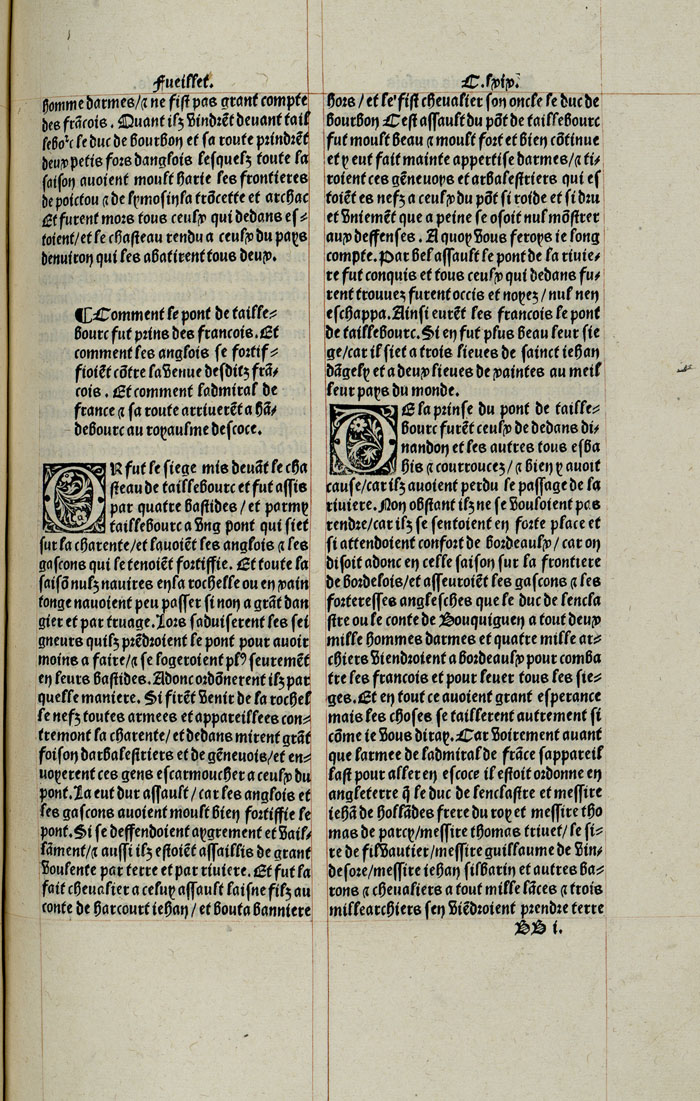 Fueillet.
C.lxix.
homme darmes/⁊ ne fist pas grant compte
des frãcois. Quant ilz vindrẽt devant tail
lebo᷑c le duc de bourbon et sa route prindrẽt
deux petis fors danglois lesquelz toute la
saison auoient moult harie les frontieres
de poictou ⁊ de lymosin la trõcette et archac
Et furent mors tous ceulx qui dedans es⸗
toient/et le chasteau rendu a ceulx du pays
denuiron qui les abatirent tous deux.
¶Comment le pont de taille⸗
bourc fut prins des francois. Et
comment les anglois se fortif⸗
fioiẽt cõtre la venue desditz frã⸗
cois. Et comment ladmiral de
france ⁊ sa route arriuerẽt a hã⸗
debourc au royaulme descoce.
OR fut le siege mis deuãt le cha
steau de taillebourc et fut assis
par quatre bastides/et parmy
taillebourc a vng pont qui siet
sur la charente/et lauoiẽt les anglois ⁊ les
gascons qui le tenoiẽt fortiffie. Et toute la
saisõ nulz nauires en la rochelle ou en xain
tonge nauoient peu passer si non a grãt dan
gier et par truage. Lors saduiserent les sei
gneurs quilz prẽdroient le pont pour auoir
moins a faire/⁊ se logeroient plꝰ seurement
en leurs bastides. Adonc ordõnerent ilz par
quelle maniere. Si firẽt venir de la rochel
le nefz toutes armees et appareillees con⸗
tremont la charente/et dedans mirent grãt
foison darbalestriers et de gẽneuois/et en⸗
uoyerent ces gens escarmoucher a ceulx du
pont. La eut dur assault/car les anglois et
les gascons auoient moult bien fortiffie le
pont. Si se deffendoient aygrement et vail⸗
lãment/⁊ aussi ilz estoiẽt assaillis de grant
voulente par terre et par riuiere. Et fut la
fait cheualier a celuy assault laisne filz au
conte de harcourt iehan/et bouta banniere
hors/et le fist cheualier son oncle le duc de
bourbon Cest assault du põt de taillebourc
fut moult beau ⁊ moult fort et bien cõtinue
et y eut fait mainte appertise darmes/⁊ ti⸗
roient ces gẽneuoys et arbalestriers qui es
toiẽt es nefz a ceulx du põt si roide et si dru
et vniemẽt que a peine se osoit nul mõstrer
aux deffenses. A quoy vous feroys ie long
compte. Par bel assault le pont de la riuie⸗
re fut conquis et tous ceulx qui dedans fu⸗
rent trouuez furent occis et noyez/nul nen
eschappa. Ainsi eurẽt les francois le pont
de taillebourc. Si en fut plus beau leur sie
ge/car il siet a trois lieues de sainct iehan
dãgely et a deux lieues de xaintes au meil
leur pays du monde.
DE la prinse du pont de taille⸗
bourc furẽt ceulx de dedans di⸗
nandon et les autres tous esba
his ⁊ courroucez/⁊ bien y auoit
cause/car ilz auoient perdu le passage de la
riuiere. Non obstant ilz ne se vouloient pas
rendre/car ilz se sentoient en forte place et
si attendoient confort de bordeaulx/car on
disoit adonc en celle saison sur la frontiere
de bordelois/et asseuroiẽt les gascons ⁊ les
forteresses anglesches que le duc de lencla
stre ou le conte de Bouquiguen a tout deux
mille hommes darmes et quatre mille ar⸗
chiers viendroient a bordeaulx pour comba
tre les francois et pour leuer tous les sie⸗
ges. Et en tout ce auoient grant esperance
mais les choses se taillerent autrement si
cõme ie vous diray. Car voirement auant
que larmee de ladmiral de frãce sappareil
last pour aller en escoce il estoit ordonne en
angleterre q̃ le duc de lenclastre et messire
iehã de hollãdes frere du roy et messire tho
mas de parcy/messire thomas triuet/le si⸗
re de filvautier/messire guillaume de vin⸗
desore/messire iehan silbarin et autres ba⸗
rons ⁊ cheualiers a tout mille lãces ⁊ trois
mille archiers sen viẽdroient prendre terre
BB i.